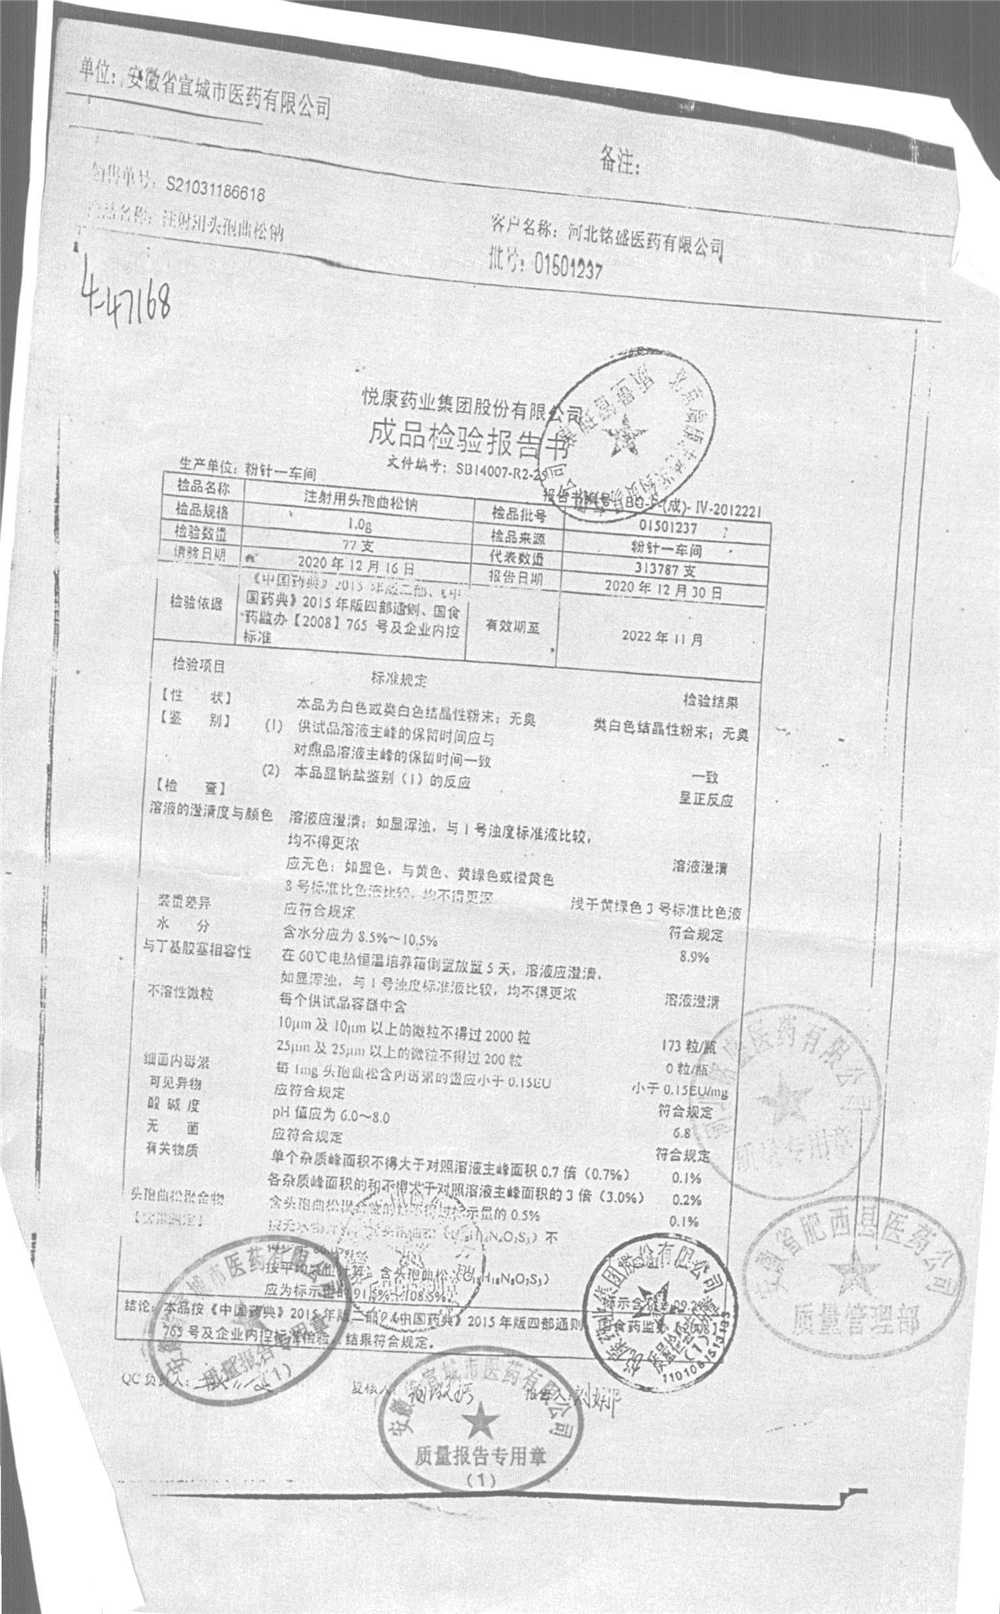 单位：安徽省宣城市医药有限公司
备注：
销售单号：S21031186618
产品名称：注射用头孢曲松钠
客户名称：河北铭盛医药有限公司
批号：01501237
4-47168
悦康药业集团股份有限公司
成品检验报告书
文件编号：SB14007-R2-25
生产单位：粉针一车间
(成)-Ⅳ-2012221
检品名称 注射用头孢曲松钠 检品批号 01501237
检品规格 1.0g 检品来源 粉针一车间
检验数量 77 支 代表数量 313787 支
请验日期 2020 年 12 月 16 日 报告日期 2020 年 12 月 30 日
检验依据 《中国药典》2015 年版二部、《中国药典》2015 年版四部通则、国食药监办【2008】765 号及企业内控标准 有效期至 2022 年 11 月
检验项目 标准规定 检验结果
【性 状】 本品为白色或类白色结晶性粉末；无臭 类白色结晶性粉末；无臭
【鉴 别】 (1) 供试品溶液主峰的保留时间应与
对照品溶液主峰的保留时间一致 一致
(2) 本品显钠盐鉴别（1）的反应 呈正反应
【检 查】
溶液的澄清度与颜色 溶液应澄清；如显浑浊，与 1 号浊度标准液比较，
均不得更浓 溶液澄清
应无色；如显色，与黄色、黄绿色或橙黄色
8 号标准比色液比较，均不得更深 浅于黄绿色 3 号标准比色液
装量差异 应符合规定 符合规定
水 分 含水分应为 8.5%～10.5% 8.9%
与丁基胶塞相容性 在 60℃电热恒温培养箱倒置放置 5 天，溶液应澄清，
如显浑浊，与 1 号浊度标准液比较，均不得更浓 溶液澄清
不溶性微粒 每个供试品容器中含
10μm 及 10μm 以上的微粒不得过 2000 粒 173 粒/瓶
25μm 及 25μm 以上的微粒不得过 200 粒 0 粒/瓶
细菌内毒素 每 1mg 头孢曲松含内毒素的量应小于 0.15EU 小于 0.15EU/mg
可见异物 应符合规定 符合规定
酸 碱 度 pH 值应为 6.0～8.0 6.8
无 菌 应符合规定 符合规定
有关物质 单个杂质峰面积不得大于对照溶液主峰面积 0.7 倍（0.7%） 0.1%
各杂质峰面积的和不得大于对照溶液主峰面积的 3 倍（3.0%） 0.2%
头孢曲松聚合物 含头孢曲松聚合物 示量的 0.5% 0.1%
【含量测定】
含头孢曲松（C₁₈H₁₈N₈O₇S₃）
应为标示量的
结论：本品按《中国药典》2015 年版二部、《中国药典》2015 年版四部通则
765 号及企业内控标准检验，结果符合规定。
QC 负责人： 复核人： 报告人：
安徽省宣城市医药有限公司
质量报告专用章
(1)
安徽省宣城市医药有限公司
质量报告专用章
(1)
安徽省肥西县医药公司
质量管理部
集团股份有限公司
(1)